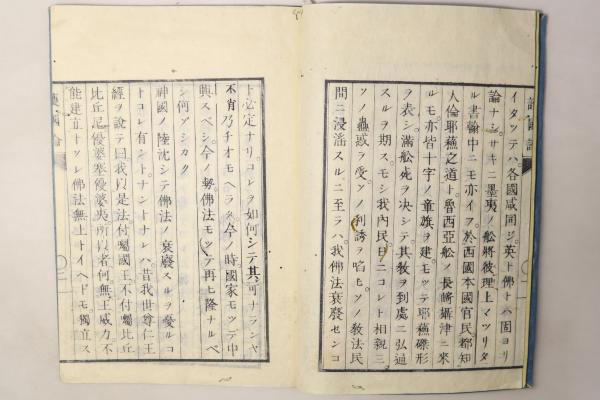 護國論
イタツテハ各國咸同ジ英ト佛トハ固ヨリ
論ナシサキニ墨夷ノ船將彼理上マツリタ
ル書翰中ニモ亦イフ於西國本國官民都知
人倫耶蘇之道ト魯西亞船ノ長﨑攝津ニ來
ルモ亦皆十字ノ章旗ヲ建モツテ耶蘇磔形
ヲ表シ滿船死ヲ决シテ其敎ヲ到處ニ弘通
スルヲ期スモシ我內民日ニコレト相親ミ
ソノ蠱惑ヲ受ソノ利誘ヲ啗ヒソノ敎法民
間ニ浸滛スルニ至ラハ我佛法衰廢センコ
ト必定ナリコレヲ如何シテ其可ナランヤ
不肖乃チオモヘラク今ノ時國家モツテ中
興スベシ今ノ勢佛法モツテ再ヒ隆ナルベ
シ何ソシカク
神國ノ陸沈シテ佛法ノ衰廢スルヲ憂ルコ
トコレ有ントナントナレハ昔我世尊仁王
經ヲ說テ曰我以是法付囑國王不付囑比丘
比丘尼優婆塞優婆夷所以者何無王威力不
能建立トソレ佛法無上トイヘドモ獨立ス
護國論